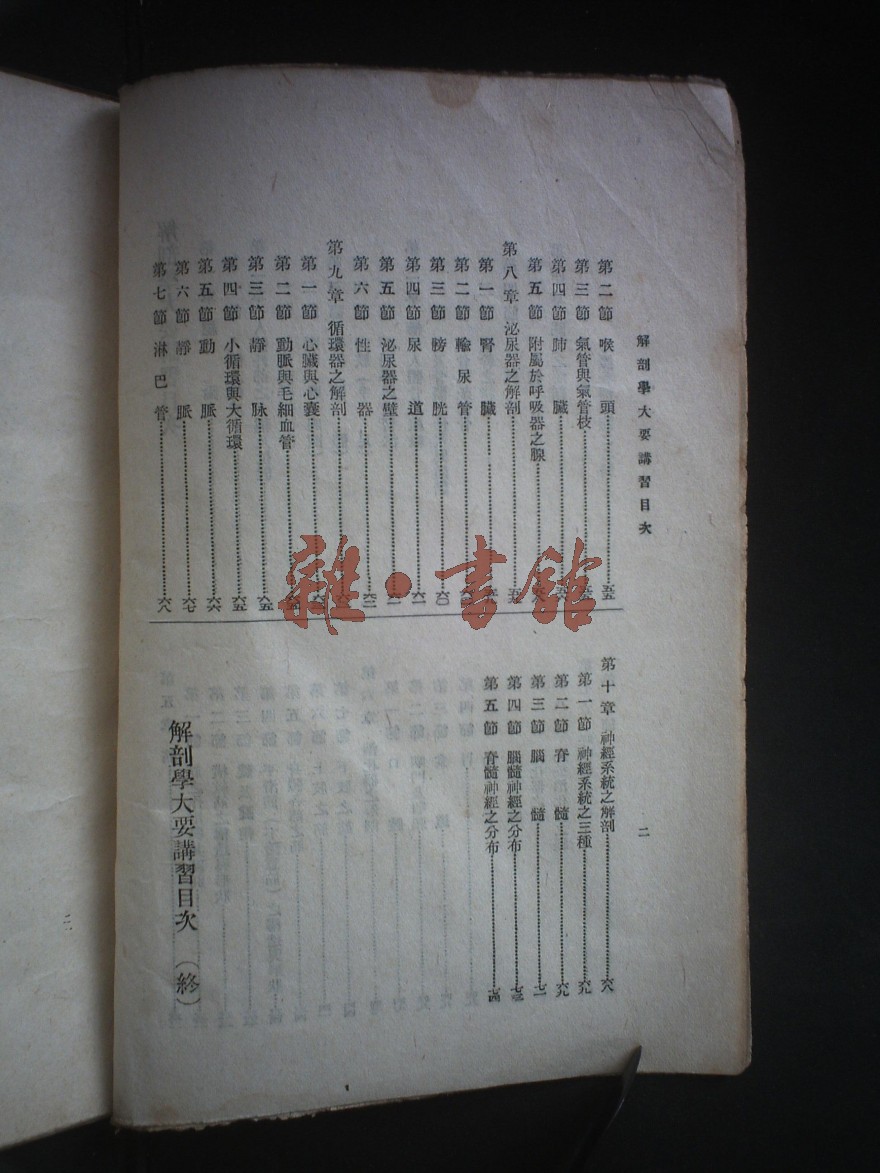 解剖學大要講習目次
二
第二節 喉頭……五五
第三節 氣管與氣管枝……
第四節 肺臟……
第五節 附屬於呼吸器之腺……
第八章 泌尿器之解剖……
第一節 腎臟……
第二節 輸尿管……
第三節 膀胱……六〇
第四節 尿道……六一
第五節 泌尿器之壁……六一
第六節 性器……六二
第九章 循環器之解剖……
第一節 心臟與心囊……
第二節 動脈與毛細血管……
第三節 靜脉……六五
第四節 小循環與大循環……六五
第五節 動脈……六六
第六節 靜脈……六七
第七節 淋巴管……六八
第十章 神經系統之解剖……六八
第一節 神經系統之三種……六九
第二節 脊髓……六九
第三節 腦髓……七一
第四節 腦髓神經之分布……七三
第五節 脊髓神經之分布……七四
解剖學大要講習目次(終)
二
雜·書館